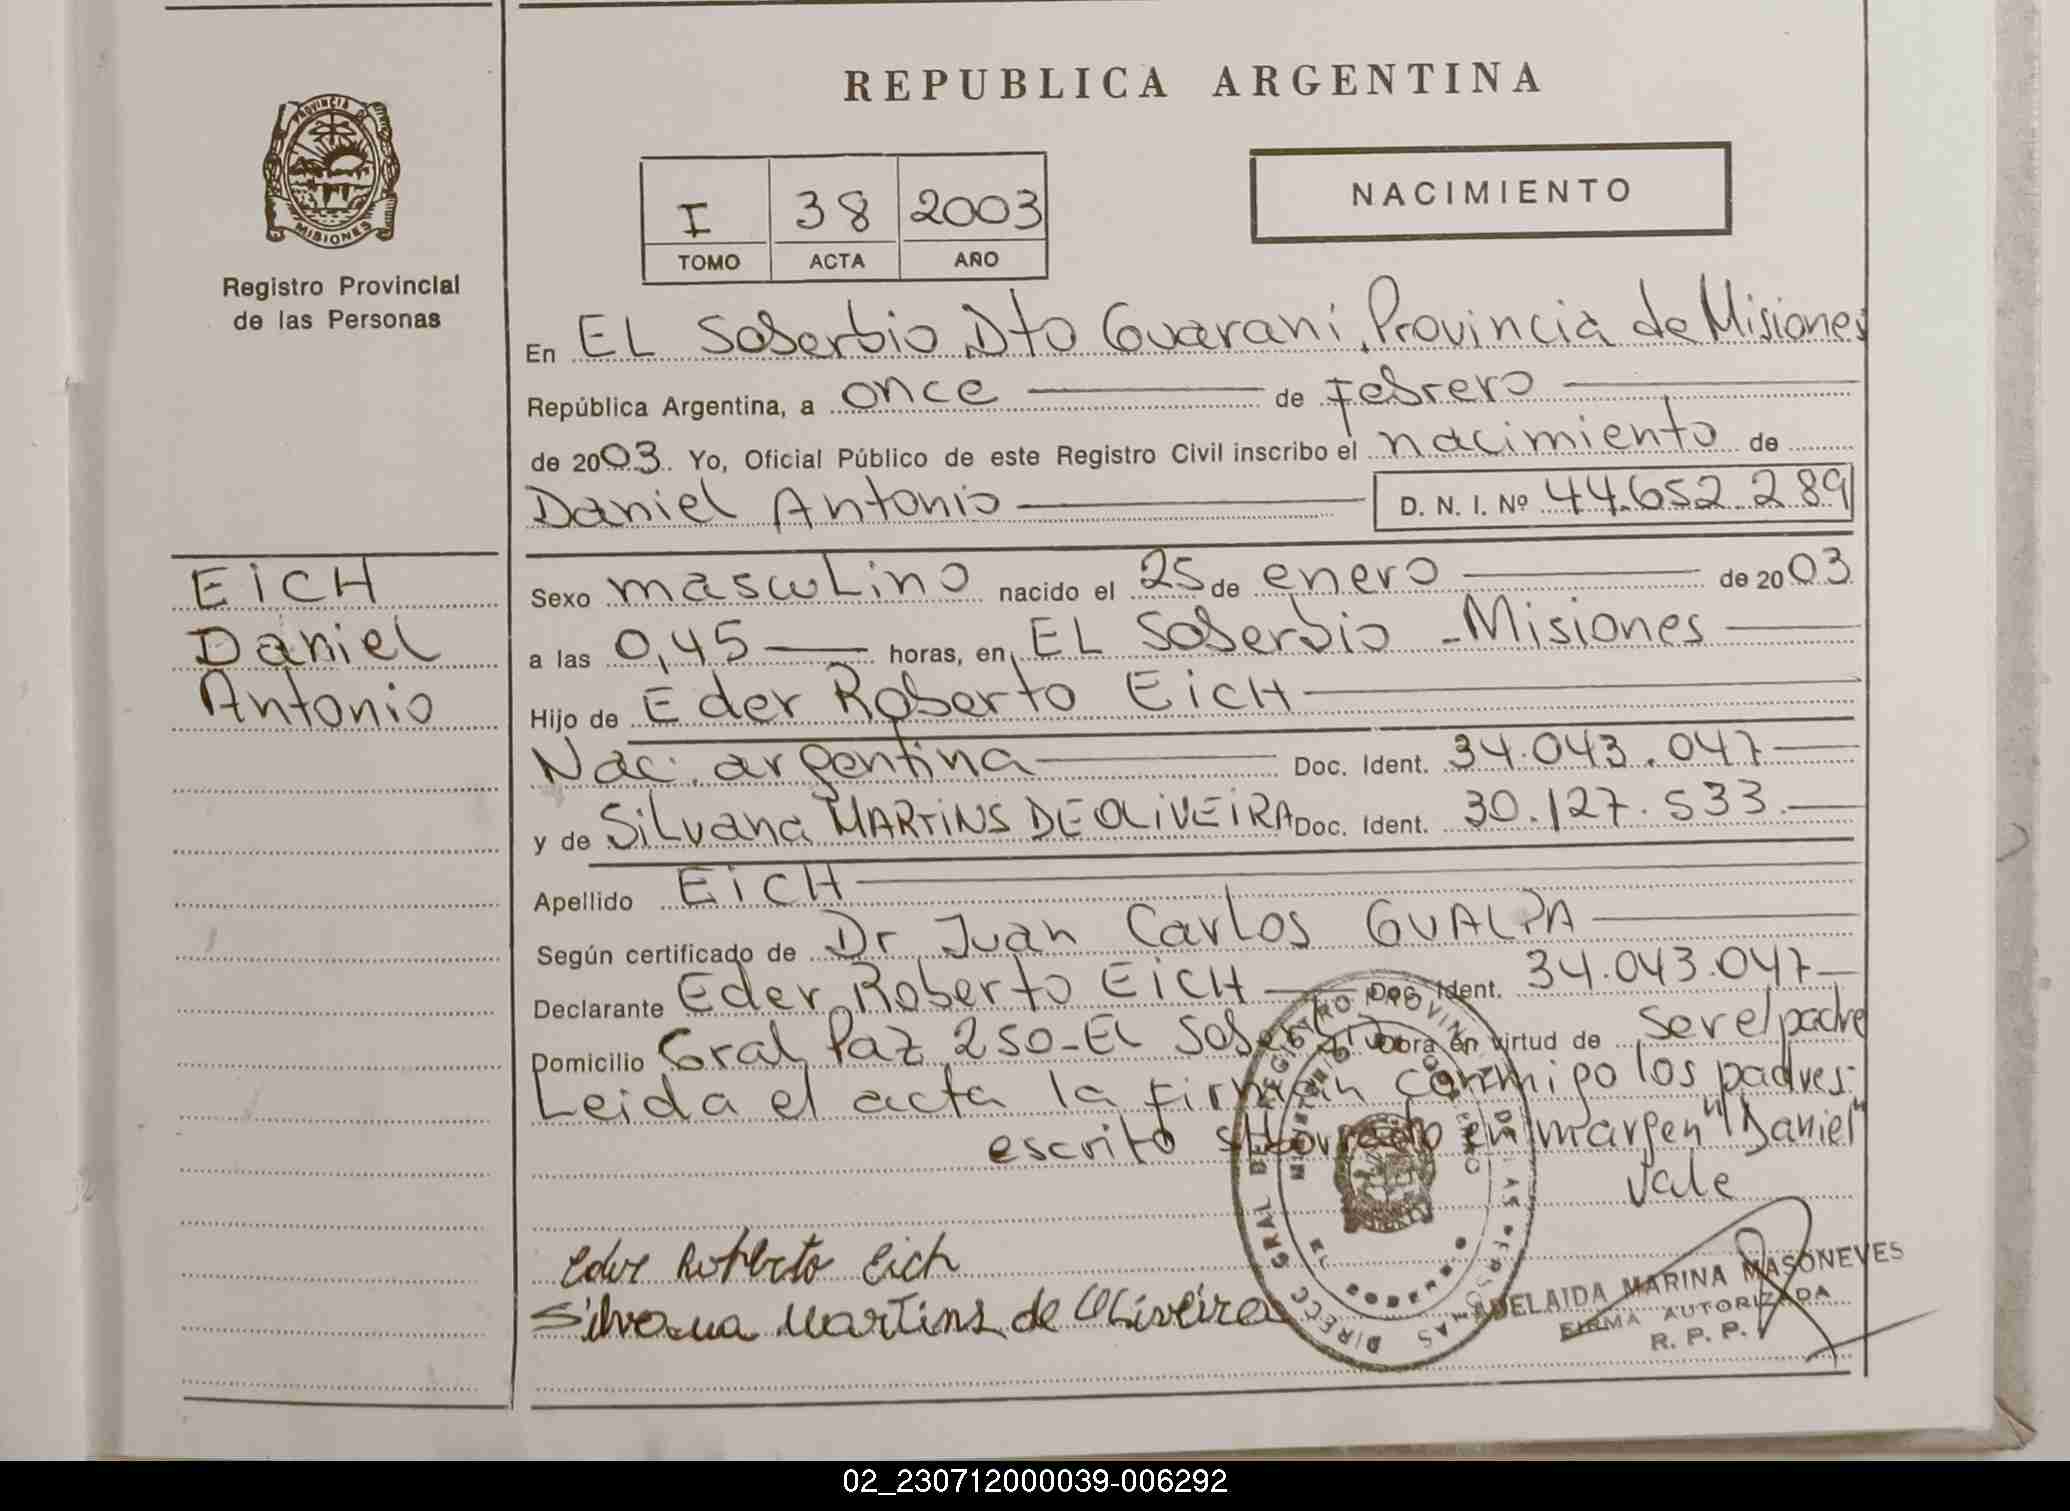 REPUBLICA ARGENTINA
PROVINCIA DE
MISIONES
Registro Provincial
de las Personas
I 38 2003
TOMO ACTA AÑO
NACIMIENTO
En EL Soberbio Dto Guarani, Provincia de Misiones
República Argentina, a once de Febrero
de 2003. Yo, Oficial Público de este Registro Civil inscribo el nacimiento de
Daniel Antonio D. N. I. Nº 44.652.289
EICH
Daniel
Antonio
Sexo masculino nacido el 25 de enero de 2003
a las 0,45 horas, en EL Soberbio - Misiones
Hijo de Eder Roberto EicH
Nac. argentina Doc. Ident. 34.043.047
y de Silvana MARTINS DE OLIVEIRA Doc. Ident. 30.127.533.
Apellido EicH
Según certificado de Dr Juan Carlos GUALPA
Declarante Eder Roberto EicH Doc. Ident. 34.043.047
Domicilio Gral Paz 250-EL Soberbio Obra en virtud de ser el padre
Leida el acta la firman conmigo los padres:
escrito s/borrado en margen "Daniel"
vale
Eder Roberto Eich
Silvana Martins de Oliveira
DIRECC. GRAL DE REGISTRO PROVINCIAL DE LAS PERSONAS
MINISTERIO DE GOBIERNO
ADELAIDA MARINA MASONEVES
FIRMA AUTORIZADA
R. P. P.
02_230712000039-006292